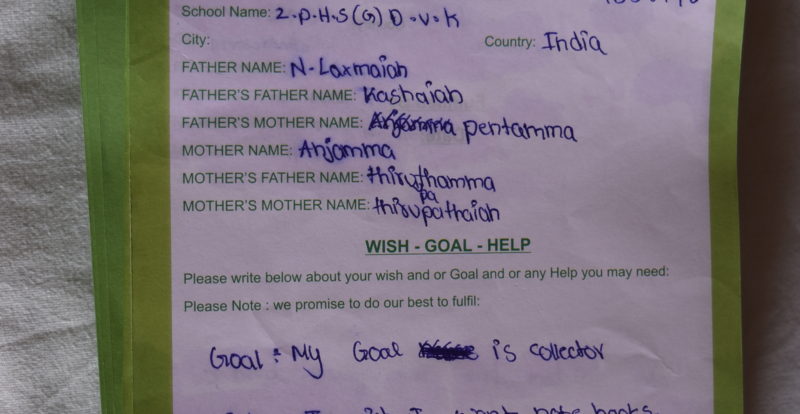 School Name: Z.P.H.S (G) D.V.K
City: Country: India
FATHER NAME: N. Laxmaiah
FATHER'S FATHER NAME: Kashaiah
FATHER'S MOTHER NAME: pentamma
MOTHER NAME: Anjamma
MOTHER'S FATHER NAME: thiruthamma
MOTHER'S MOTHER NAME: thirupathaiah
WISH - GOAL - HELP
Please write below about your wish and or Goal and or any Help you may need:
Please Note : we promise to do our best to fulfil:
Goal : My Goal is collector